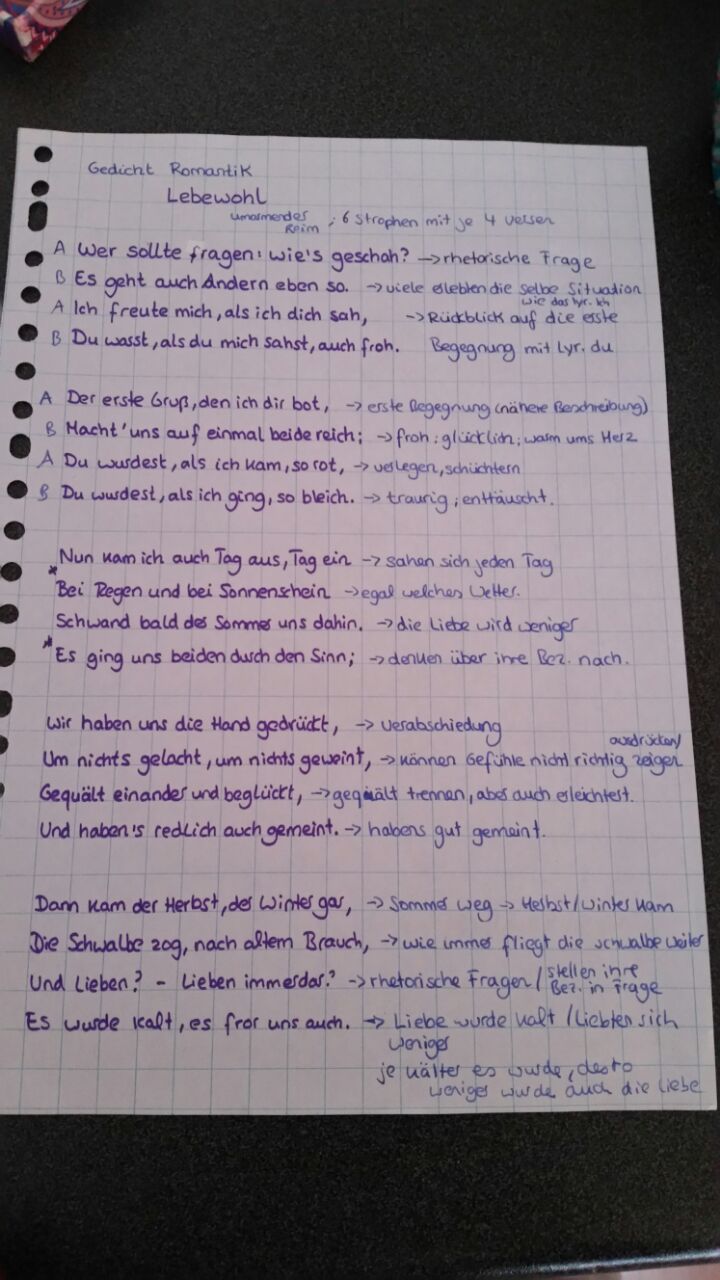 Gedicht Romantik
Lebewohl
umarmendes Reim ; 6 Strophen mit je 4 versen
A Wer sollte fragen: wie's geschah? → rhetorische Frage
B Es geht auch Andern eben so. → viele erlebten die selbe Situation wie das lyr. Ich
A Ich freute mich, als ich dich sah, → Rückblick auf die erste
B Du warst, als du mich sahst, auch froh. Begegnung mit lyr. du
A Der erste Gruß, den ich dir bot, → erste Begegnung (nähere Beschreibung)
B Macht' uns auf einmal beide reich; → froh; glücklich; warm ums Herz
A Du wurdest, als ich kam, so rot, → verlegen, schüchtern
B Du wurdest, als ich ging, so bleich. → traurig; enttäuscht.
Nun kam ich auch Tag aus, Tag ein → sahen sich jeden Tag
* Bei Regen und bei Sonnenschein → egal welches Wetter.
Schwand bald der Sommer uns dahin. → die Liebe wird weniger
* Es ging uns beiden durch den Sinn; → denken über ihre Bez. nach.
Wir haben uns die Hand gedrückt, → verabschiedung
Um nichts gelacht, um nichts geweint, → können Gefühle nicht richtig zeigen ausdrücken/
Gequält einander und beglückt, → gequält trennen, aber auch erleichtert.
Und haben's redlich auch gemeint. → habens gut gemeint.
Dann kam der Herbst, der Winter gar, → Sommer weg → Herbst/Winter kam
Die Schwalbe zog, nach altem Brauch, → wie immer fliegt die schwalbe weiter
Und Lieben? - Lieben immerdar? → rhetorische Fragen / stellen ihre Bez. in Frage
Es wurde kalt, es fror uns auch. → Liebe wurde kalt / Liebten sich
weniger
je kälter es wurde, desto
weniger wurde auch die Liebe